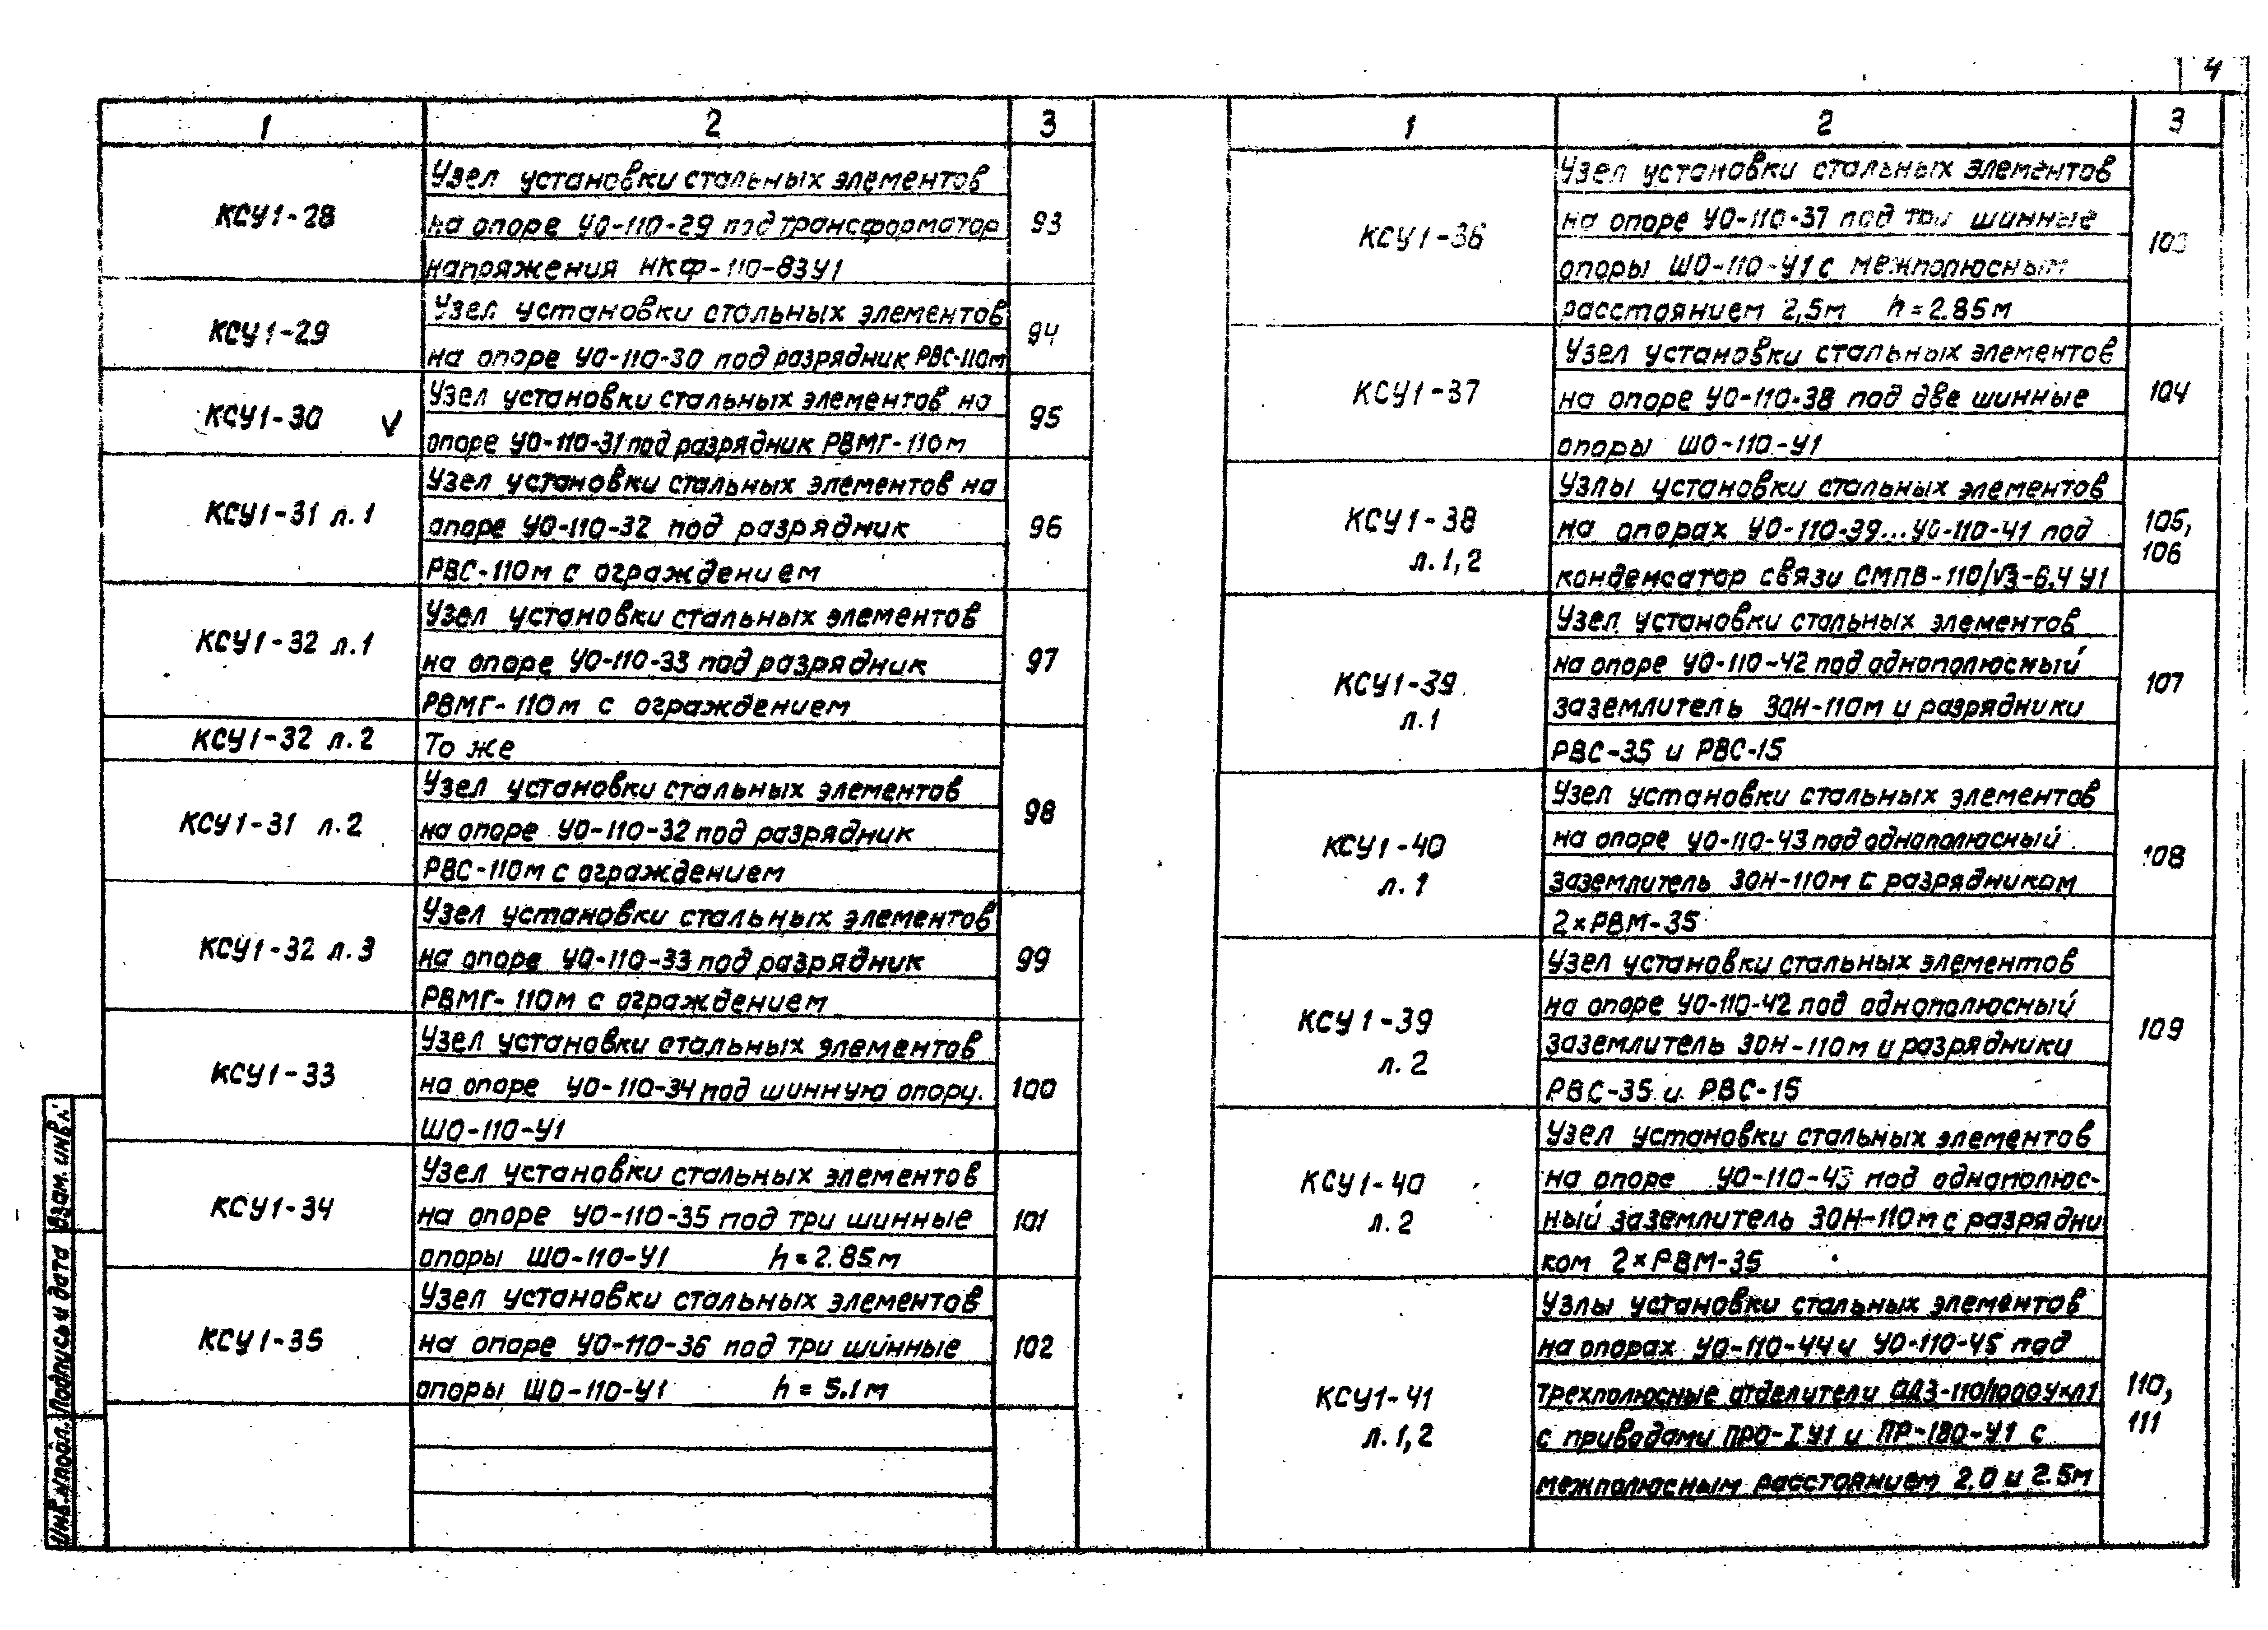 4
1 2 3
КСУ1-28
Узел установки стальных элементов
на опоре УО-110-29 под трансформатор
напряжения НКФ-110-83У1
93
КСУ1-29
Узел установки стальных элементов
на опоре УО-110-30 под разрядник РВС-110м
94
КСУ1-30 V
Узел установки стальных элементов на
опоре УО-110-31 под разрядник РВМГ-110м
95
КСУ1-31 л.1
Узел установки стальных элементов на
опоре УО-110-32 под разрядник
РВС-110м с ограждением
96
КСУ1-32 л.1
Узел установки стальных элементов
на опоре УО-110-33 под разрядник
РВМГ-110м с ограждением
97
КСУ1-32 л.2
То же
КСУ1-31 л.2
Узел установки стальных элементов
на опоре УО-110-32 под разрядник
РВС-110м с ограждением
98
КСУ1-32 л.3
Узел установки стальных элементов
на опоре УО-110-33 под разрядник
РВМГ-110м с ограждением
99
КСУ1-33
Узел установки стальных элементов
на опоре УО-110-34 под шинную опору.
ШО-110-У1
100
КСУ1-34
Узел установки стальных элементов
на опоре УО-110-35 под три шинные
опоры ШО-110-У1 h=2.85м
101
КСУ1-35
Узел установки стальных элементов
на опоре УО-110-36 под три шинные
опоры ШО-110-У1 h=5.1м
102
1 2 3
КСУ1-36
Узел установки стальных элементов
на опоре УО-110-37 под три шинные
опоры ШО-110-У1 с межполюсным
расстоянием 2,5м h=2.85м
103
КСУ1-37
Узел установки стальных элементов
на опоре УО-110-38 под две шинные
опоры ШО-110-У1
104
КСУ1-38
л.1,2
Узлы установки стальных элементов
на опорах УО-110-39...УО-110-41 под
конденсатор связи СМПВ-110/√3-6.4 У1
105,
106
КСУ1-39
л.1
Узел установки стальных элементов
на опоре УО-110-42 под однополюсный
заземлитель ЗОН-110м и разрядники
РВС-35 и РВС-15
107
КСУ1-40
л.1
Узел установки стальных элементов
на опоре УО-110-43 под однополюсный
заземлитель ЗОН-110м с разрядником
2×РВМ-35
108
КСУ1-39
л.2
Узел установки стальных элементов
на опоре УО-110-42 под однополюсный
заземлитель ЗОН-110м и разрядники
РВС-35 и РВС-15
109
КСУ1-40
л.2
Узел установки стальных элементов
на опоре УО-110-43 под однополюс-
ный заземлитель ЗОН-110м с разрядни
ком 2×РВМ-35
КСУ1-41
л.1,2
Узлы установки стальных элементов
на опорах УО-110-44 и УО-110-45 под
трехполюсные отделители ОДЗ-110/1000УХЛ1
с приводами ПРО-IУ1 и ПР-180-У1 с
межполюсным расстоянием 2.0 и 2.5м
110,
111
Инв.№подл. Подпись и дата Взам. инв.